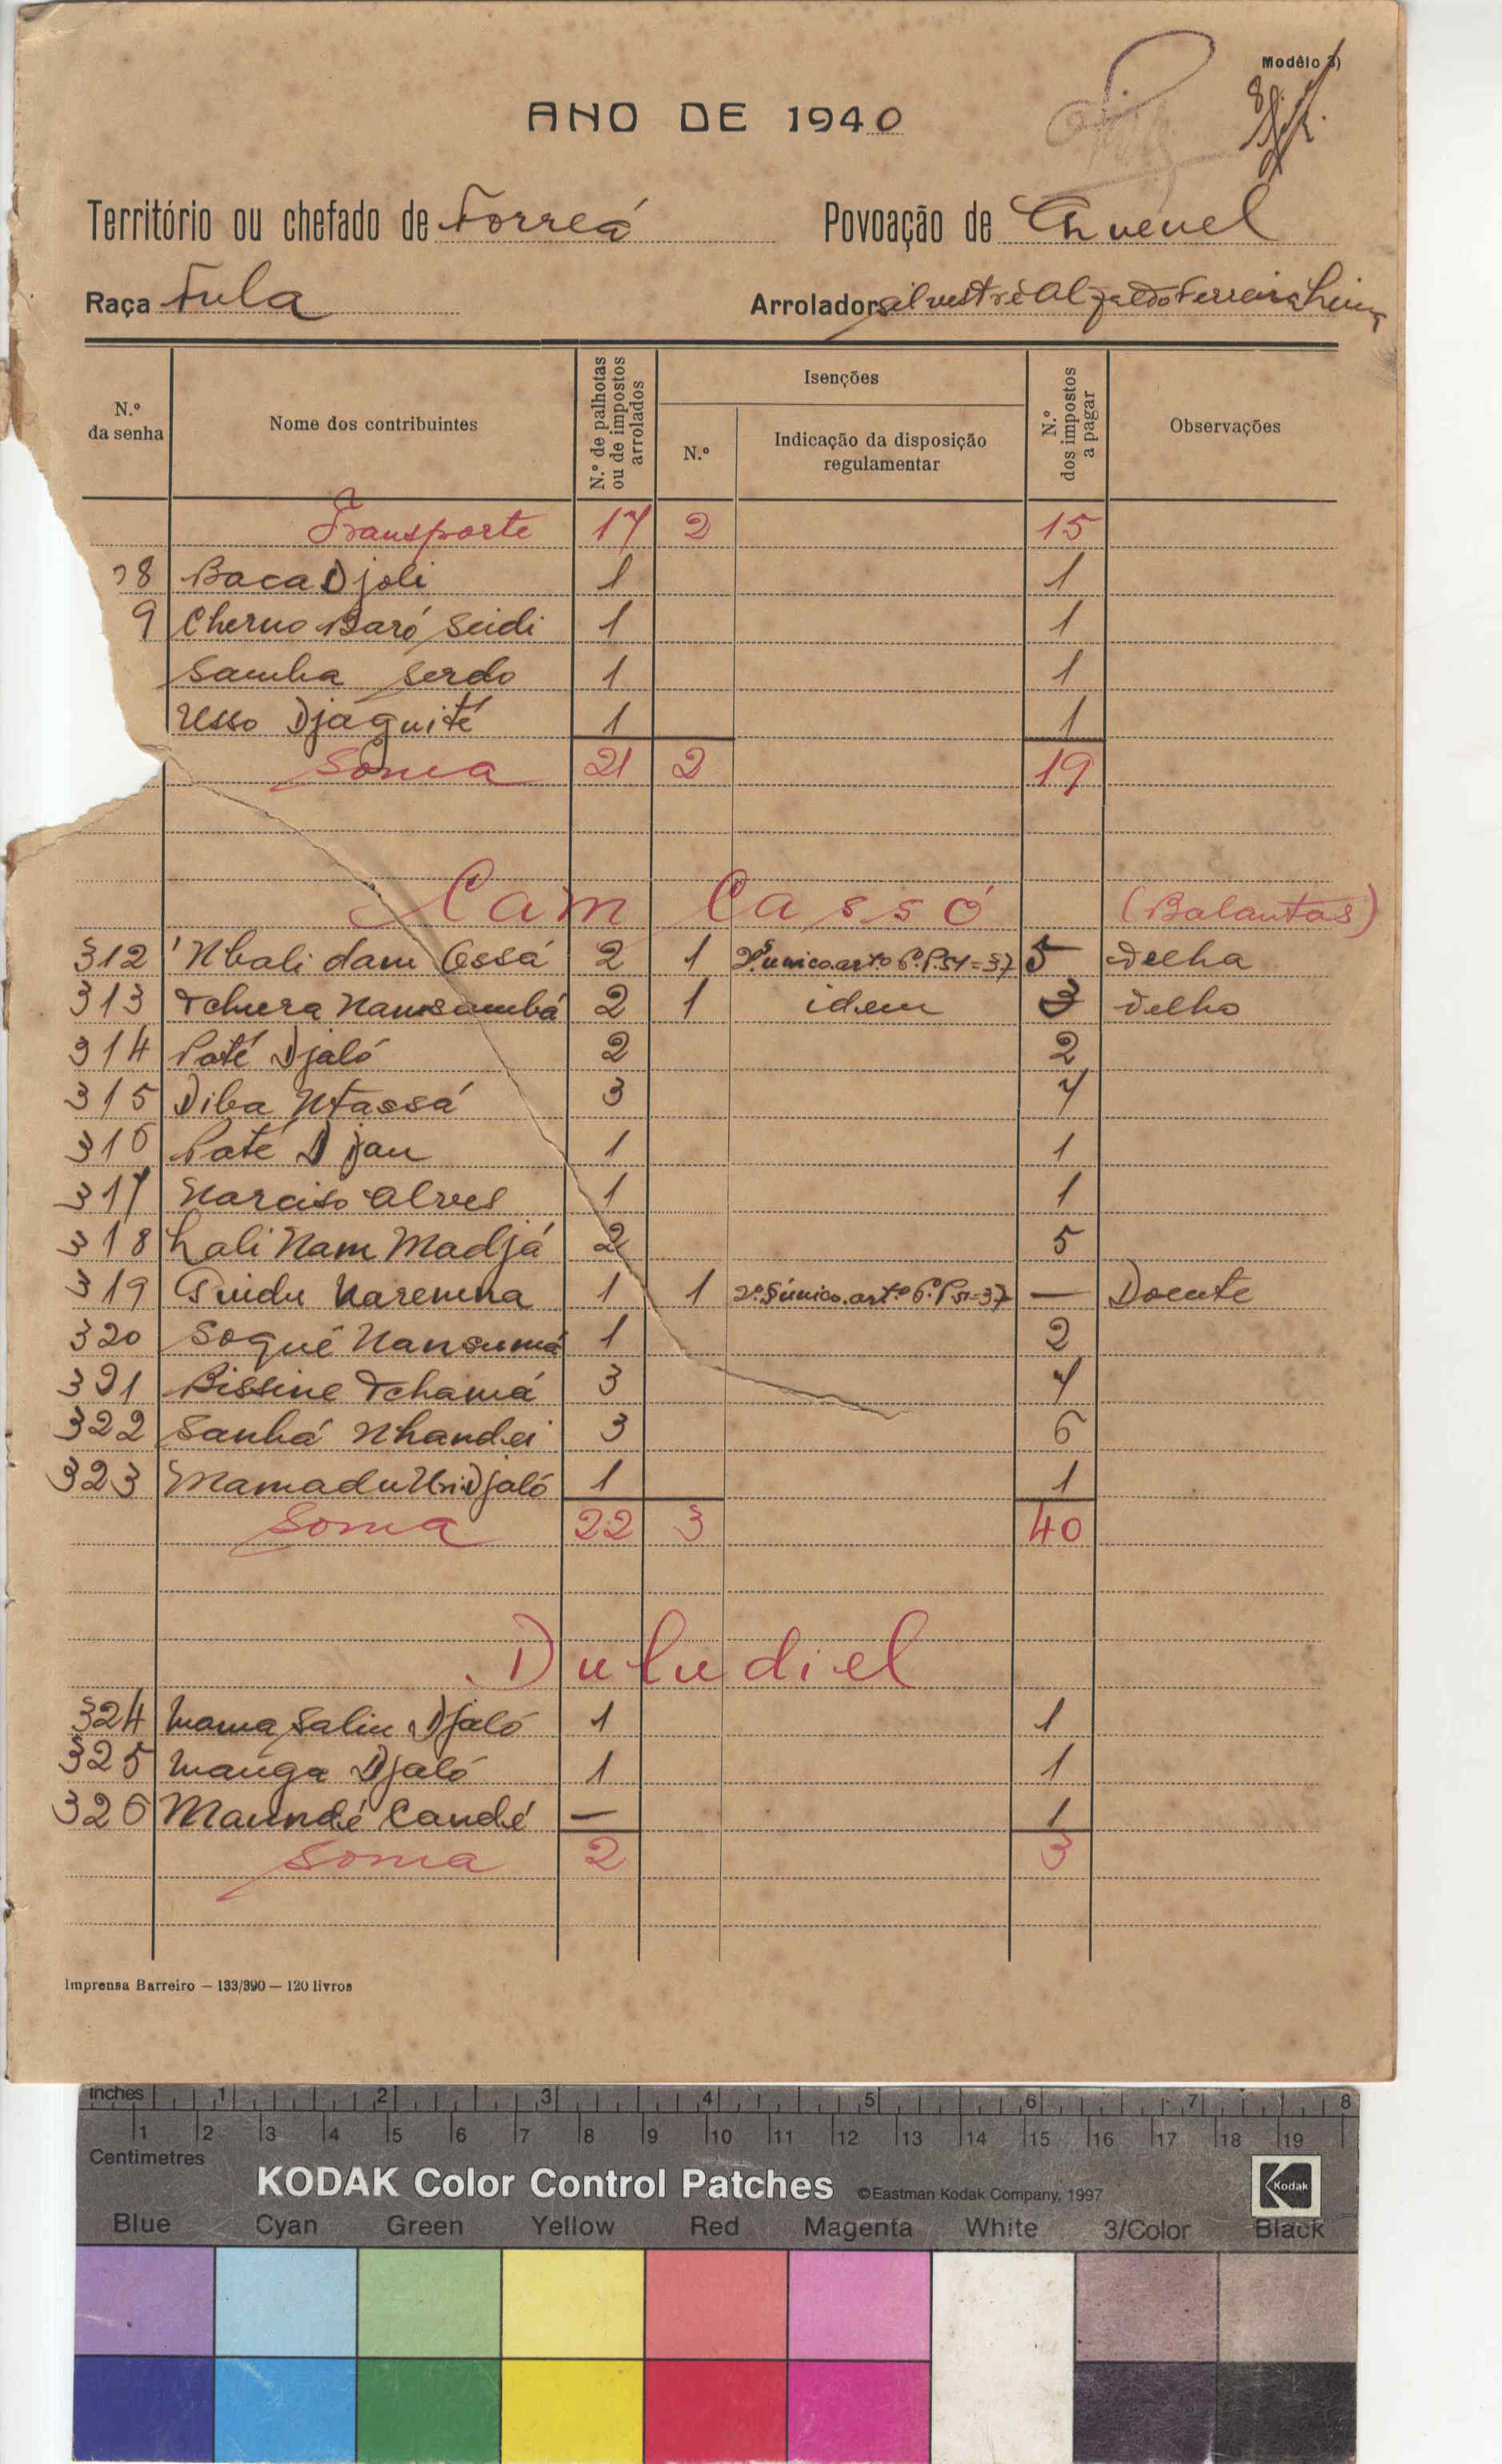 Modêlo 3)
ANO DE 1940
Território ou chefado de Forreá Povoação de Chuenel
Raça Fula Arrolador Silvestre Alzaldo Ferreira Lima
N.º da senha
Nome dos contribuintes
N.º de palhotas ou de impostos arrolados
Isenções
N.º
Indicação da disposição regulamentar
N.º dos impostos a pagar
Observações
Transporte 17 2 15
8 Baca Djoli 1 1
9 Cherno Baró Seidi 1 1
Samba Serdo 1 1
Usso Djaguité 1 1
Soma 21 2 19
Cam Cassó (Balantas)
312 Nbali dam Cossá 2 1 5 Velha
313 Tchuera Nansambá 2 1 idem 3 Velho
314 Paté Djaló 2 2
315 Diba Ntassá 3 7
316 Paté Djau 1 1
317 Narciso Alves 1 1
318 Lali Nam Madjá 2 5
319 Guidu Naremna 1 1 2º § único artº 6º P. 51=37 — Doente
320 Soqué Nansumá 1 2
321 Bissine Tchamá 3 7
322 Sanhá Nhandei 3 6
323 Mamadu Uri Djaló 1 1
Soma 22 3 40
Duludiel
324 Mama Saliu Djaló 1 1
325 Manga Djaló 1 1
326 Maundé Candé — 1
Soma 2 3
Imprensa Barreiro — 133/390 — 120 livros
inches 1 2 3 4 5 6 7 8
1 2 3 4 5 6 7 8 9 10 11 12 13 14 15 16 17 18 19
Centimetres
KODAK Color Control Patches ©Eastman Kodak Company, 1997 Kodak
Blue Cyan Green Yellow Red Magenta White 3/Color Black